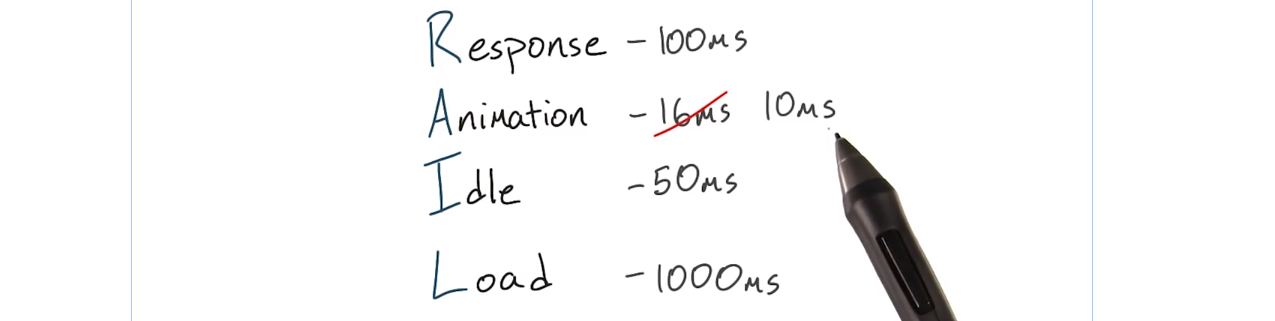 Response - 100ms
Animation - 16ms 10ms
Idle - 50ms
Load - 1000ms